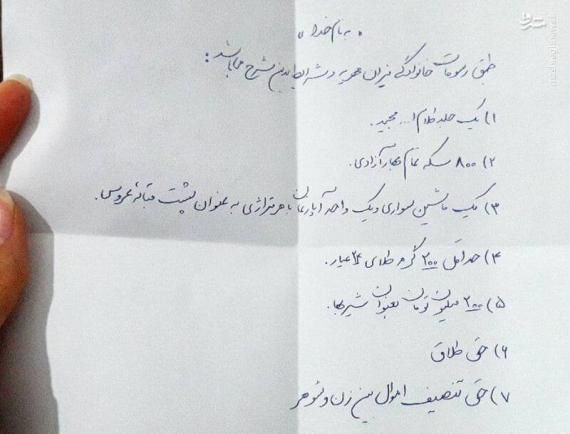 « به نام خدا »
طبق رسومات خانوادگی میزان مهریه و شرایط بدین شرح می‌باشد:
۱) یک جلد کلام ا... مجید.
۲) ۸۰۰ سکه تمام بهار آزادی.
۳) یک ماشین سواری و یک واحد آپارتمان با هر متراژی به عنوان پشت قباله عروس.
۴) حداقل ۲۰۰ گرم طلای ۲۴ عیار.
۵) ۲۰۰ میلیون تومان بعنوان شیربها.
۶) حق طلاق
۷) حق تنصیف اموال بین زن و شوهر